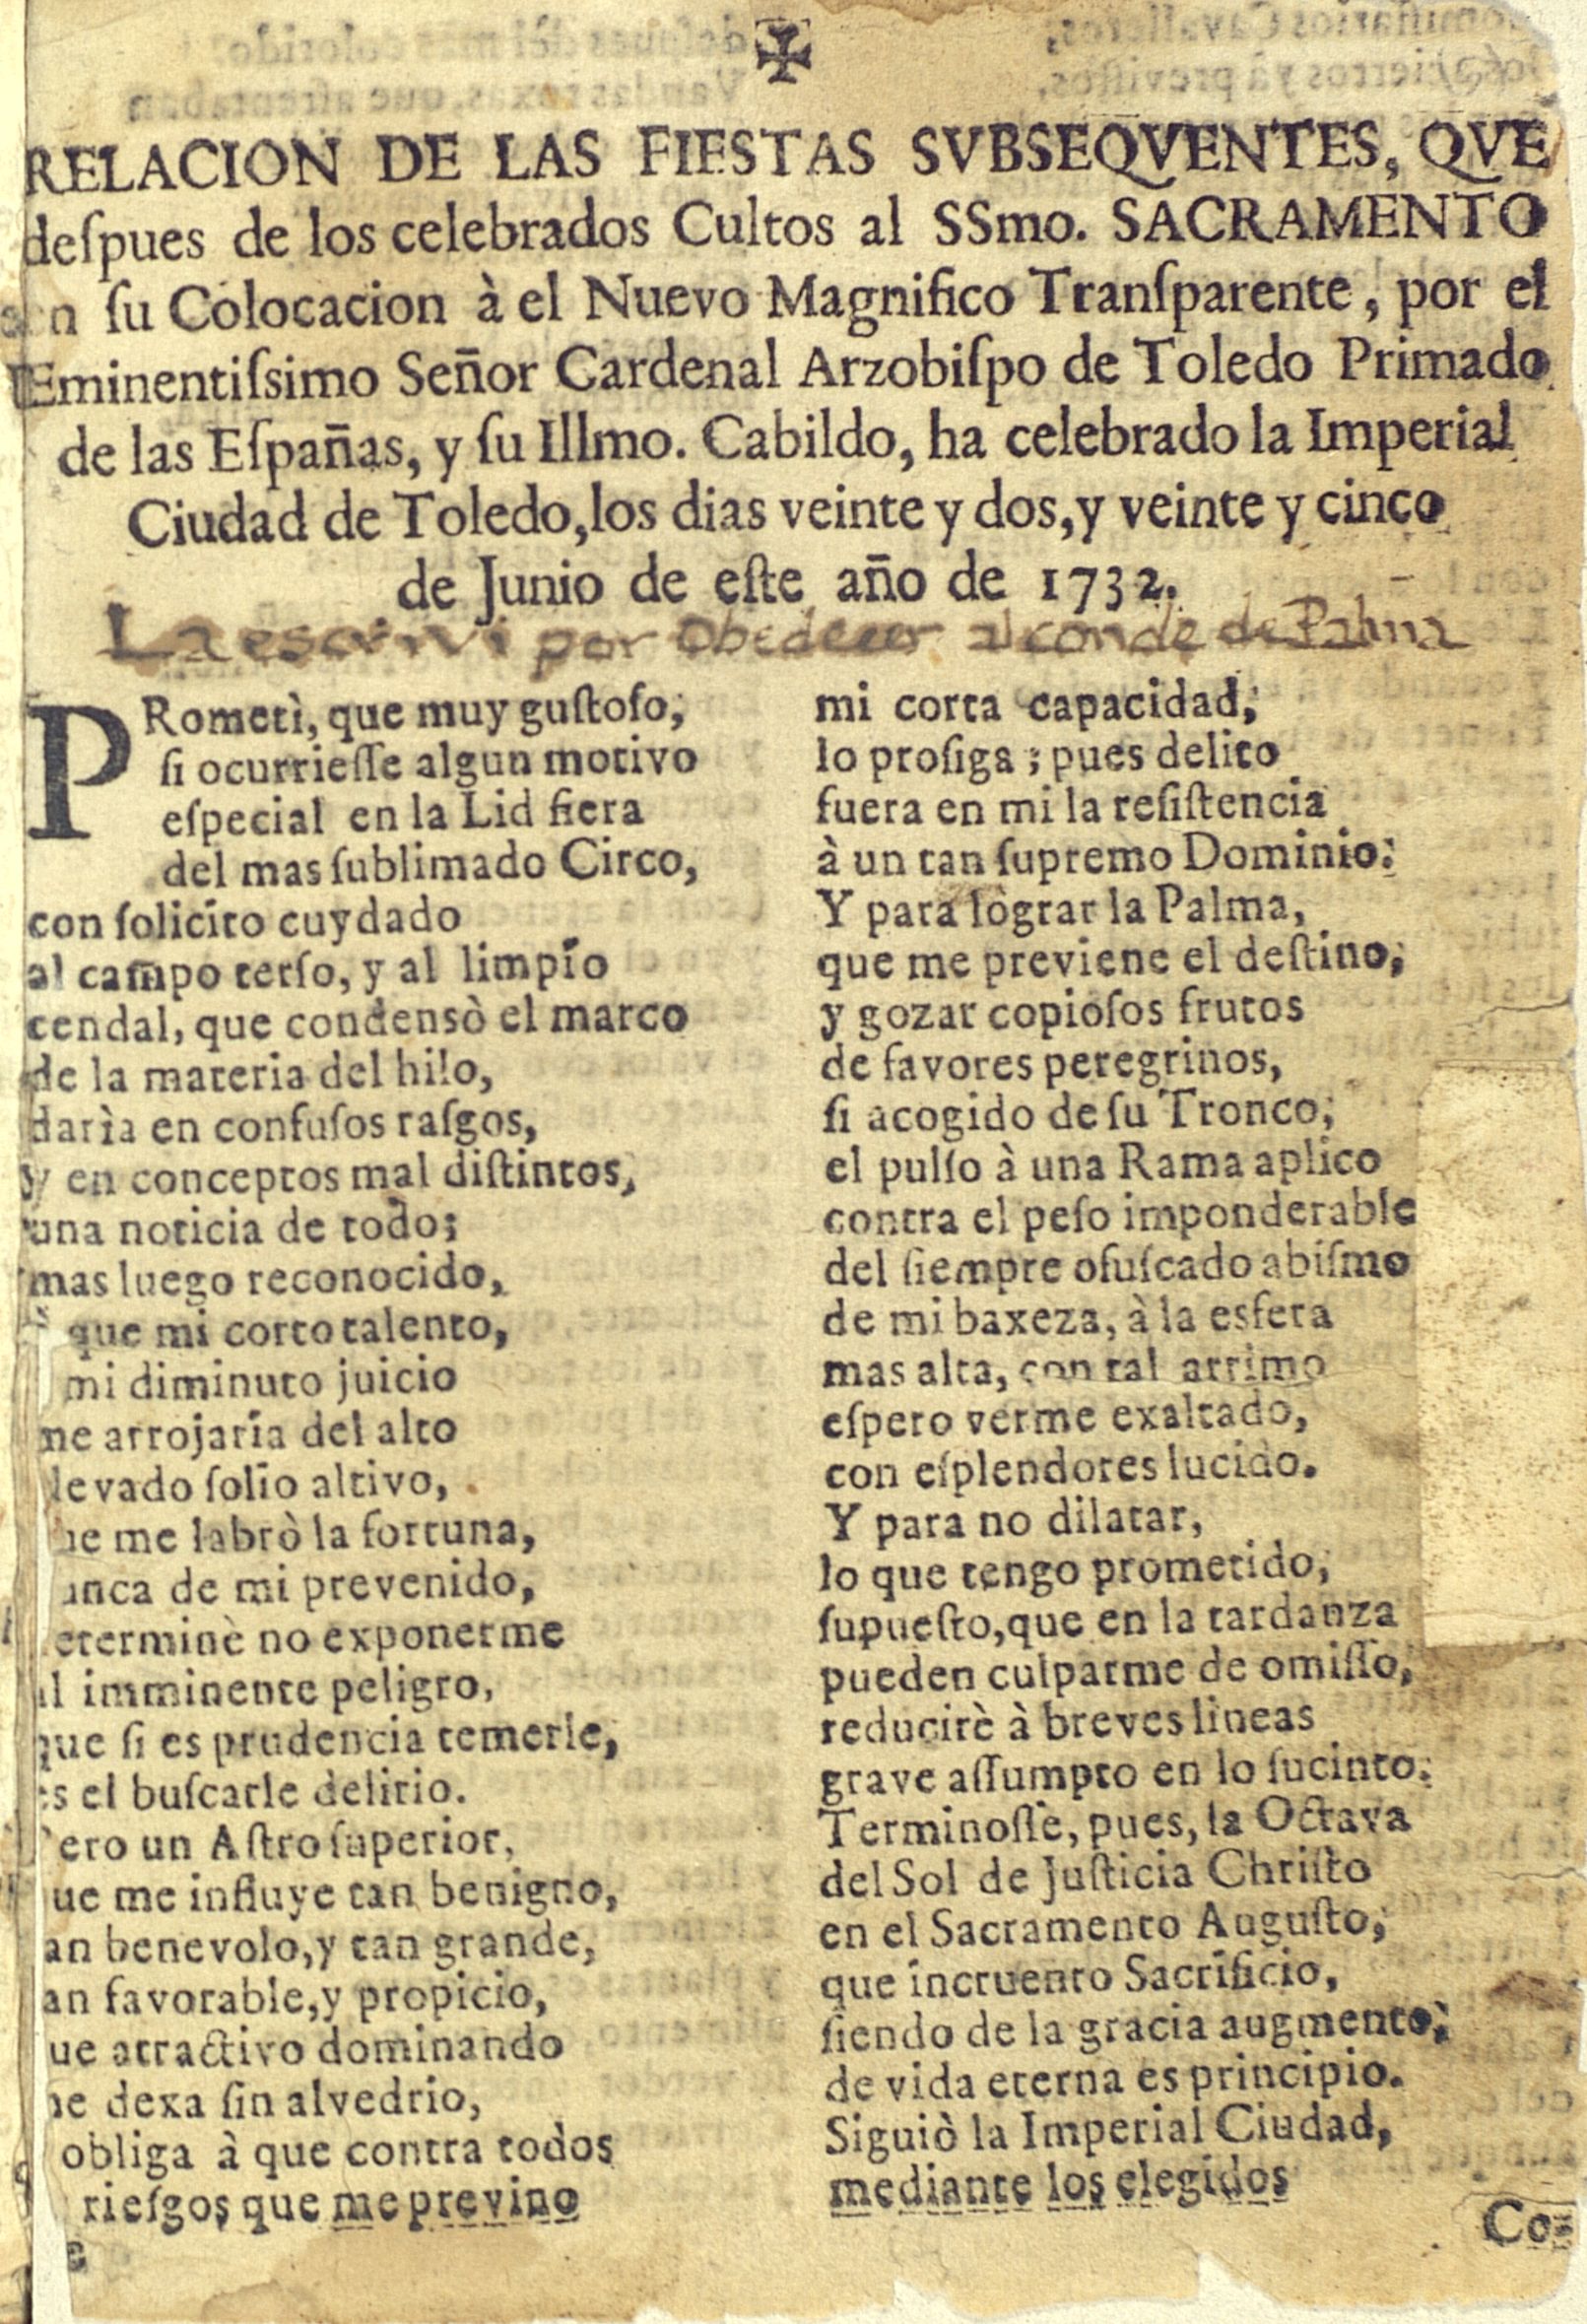 ✠
RELACION DE LAS FIESTAS SVBSEQVENTES, QVE
deſpues de los celebrados Cultos al SSmo. SACRAMENTO
en ſu Colocacion à el Nuevo Magnifico Tranſparente, por el
Eminentiſsimo Señor Cardenal Arzobiſpo de Toledo Primado
de las Eſpañas, y ſu Illmo. Cabildo, ha celebrado la Imperial
Ciudad de Toledo, los dias veinte y dos, y veinte y cinco
de Junio de eſte año de 1732.
La escrivi por obedecer al conde de Palma
PRometì, que muy guſtoſo,
ſi ocurrieſſe algun motivo
eſpecial en la Lid fiera
del mas ſublimado Circo,
con ſolicito cuydado
al campo terſo, y al limpio
cendal, que condensò el marco
de la materia del hilo,
darìa en confuſos raſgos,
y en conceptos mal diſtintos,
una noticia de todo;
mas luego reconocido,
que mi corto talento,
mi diminuto juicio
me arrojaría del alto
levado ſolio altivo,
ue me labrò la fortuna,
unca de mi prevenido,
eterminè no exponerme
al imminente peligro,
que ſi es prudencia temerle,
es el buſcarle delirio.
Pero un Aſtro ſuperior,
ue me influye tan benigno,
an benevolo, y tan grande,
an favorable, y propicio,
ue atractivo dominando
me dexa ſin alvedrio,
obliga à que contra todos
rieſgos que me previno
mi corta capacidad,
lo proſiga; pues delito
fuera en mi la reſiſtencia
à un tan ſupremo Dominio:
Y para lògrar la Palma,
que me previene el deſtino,
y gozar copioſos frutos
de favores peregrinos,
ſi acogido de ſu Tronco,
el pulſo à una Rama aplico
contra el peſo imponderable
del ſiempre ofuſcado abiſmo
de mi baxeza, à la esfera
mas alta, con tal arrimo
eſpero verme exaltado,
con eſplendores lucido.
Y para no dilatar,
lo que tengo prometido,
ſupueſto, que en la tardanza
pueden culparme de omiſſo,
reducirè à breves lineas
grave aſſumpto en lo ſucinto.
Terminoſſe, pues, la Octava
del Sol de Juſticia Chriſto
en el Sacramento Auguſto,
que incruento Sacrificio,
ſiendo de la gracia augmento,
de vida eterna es principio.
Siguiò la Imperial Ciudad,
mediante los elegidos
Co-